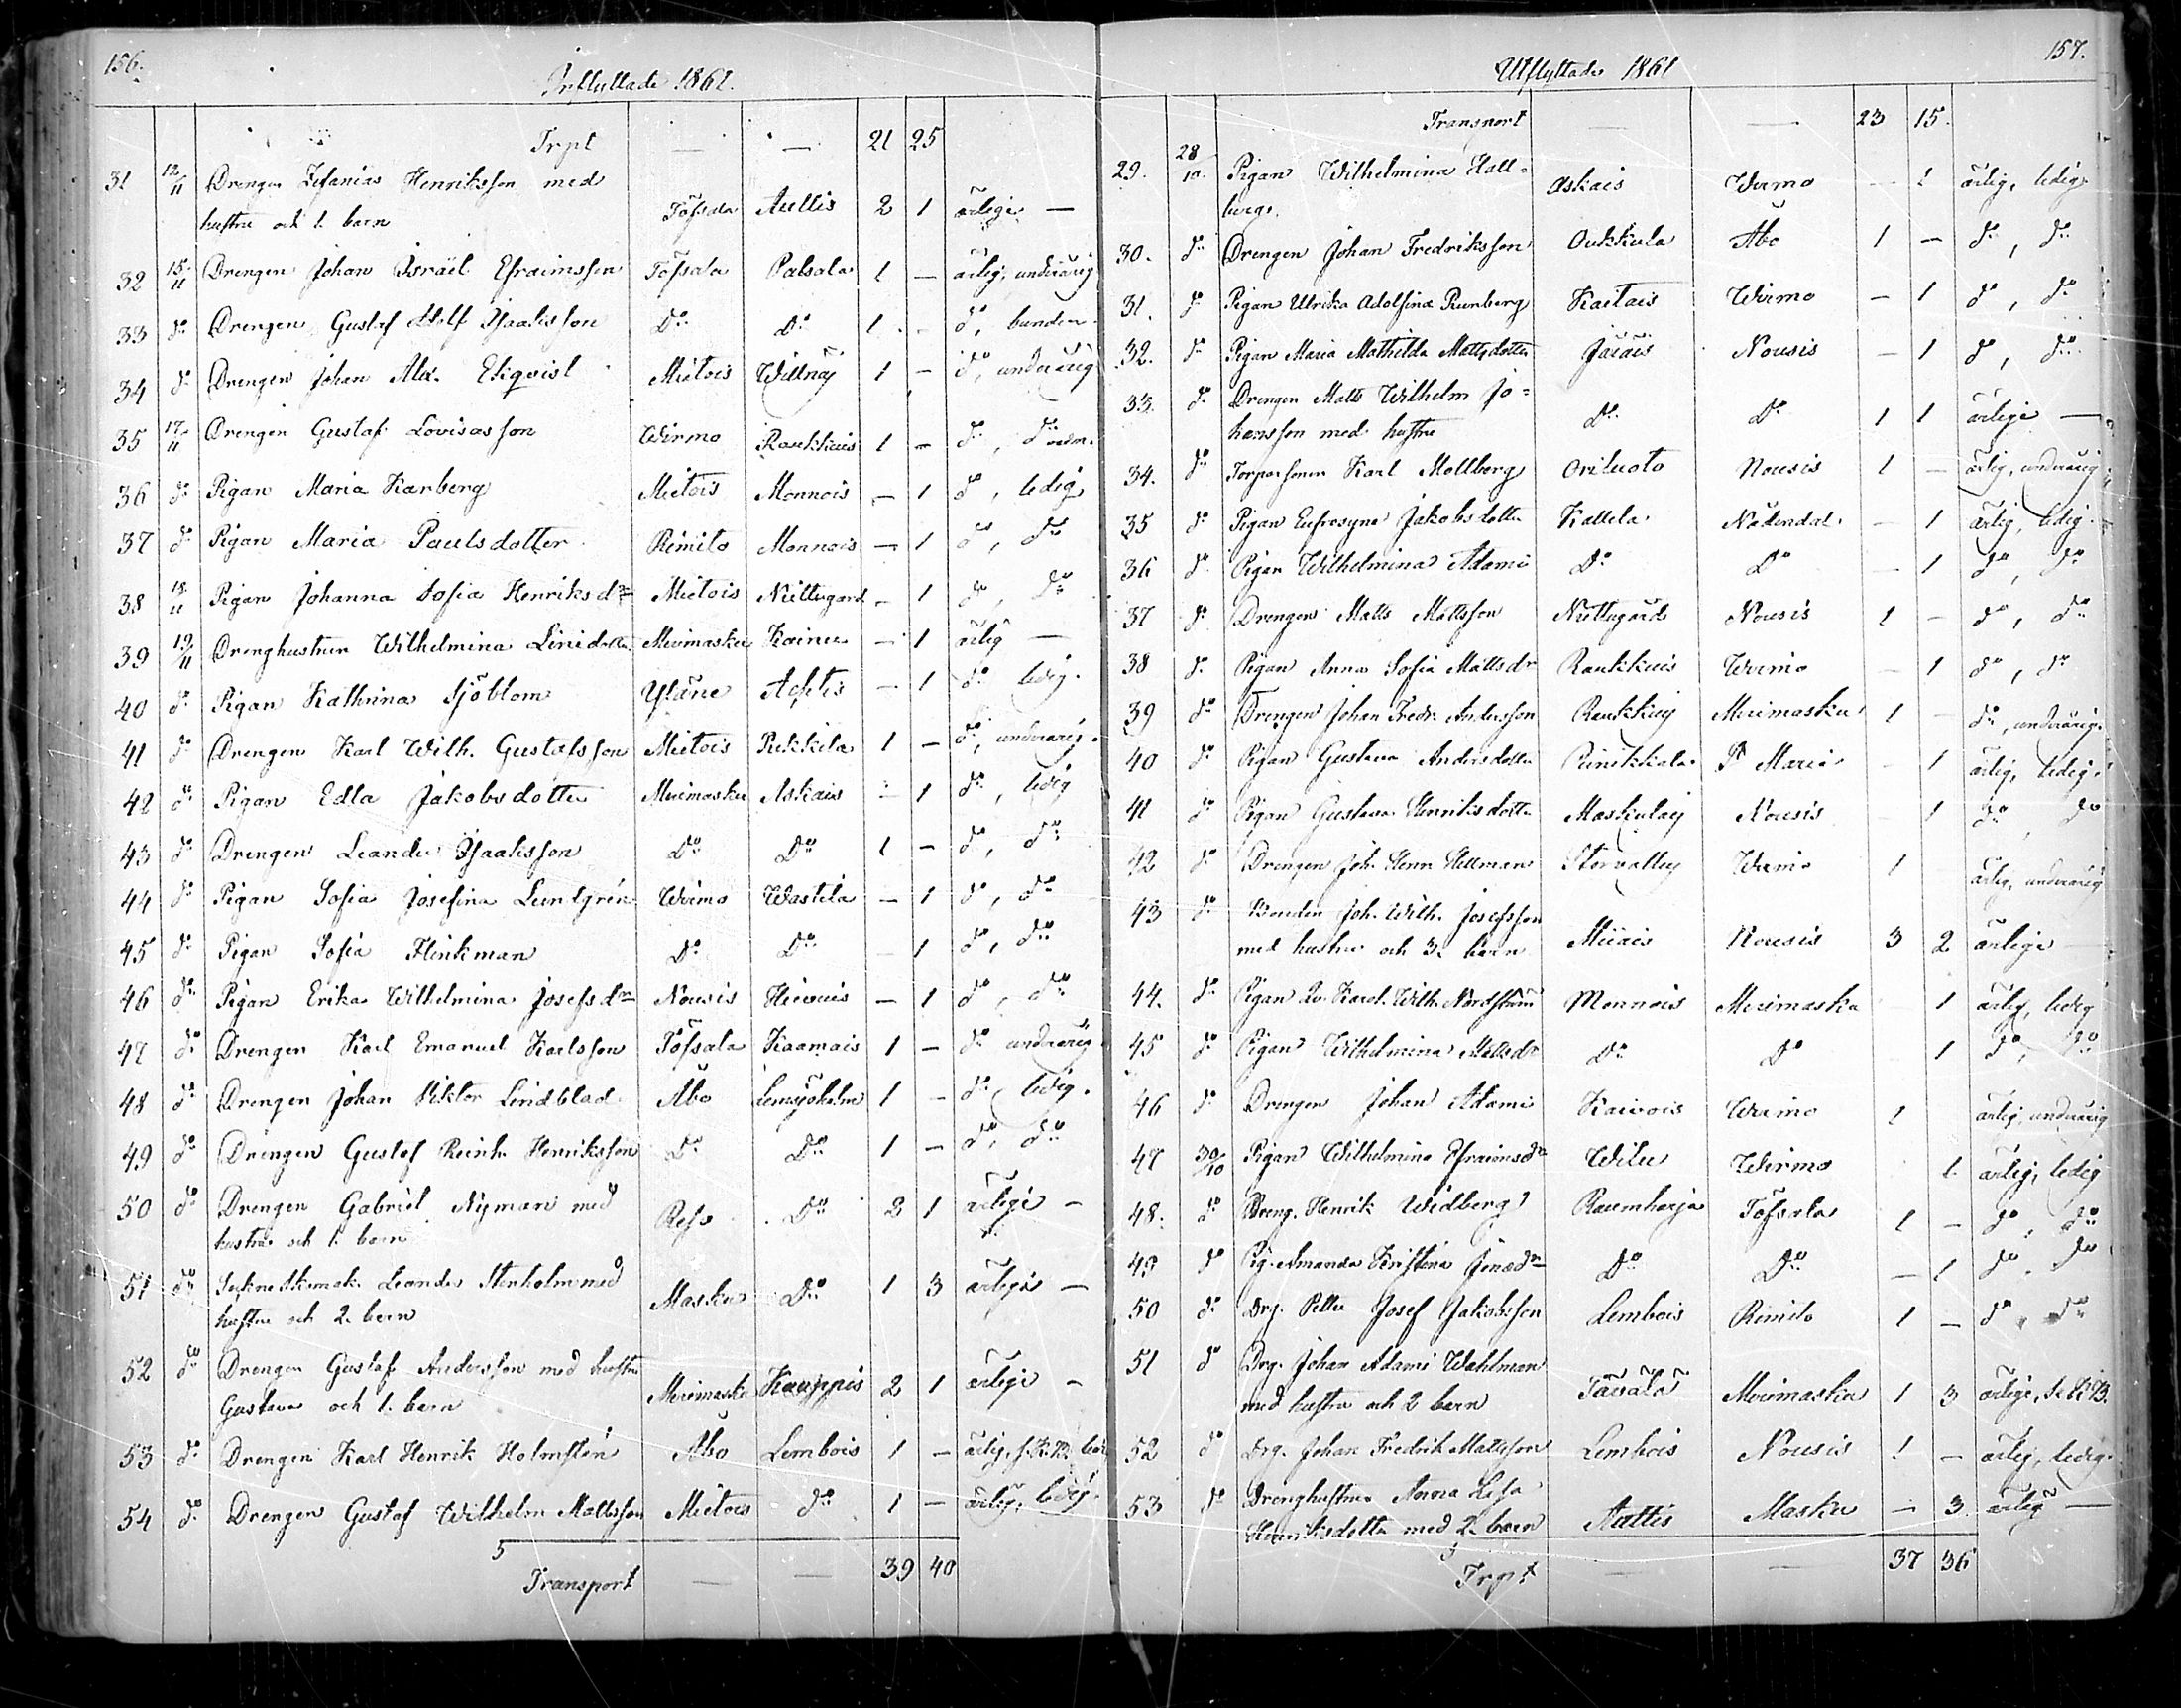 156.
Inflyttade 1861.
Trpt — — 21 25
31 12/11 Drengen Zefanias Henriksson med
hustru och 1. barn Töfsala Autlis 2 1 ärlige —
32 15/11 Drengen Johan Israël Efraimsson Töfsala Palsala 1 — ärlig, underårig
33 do Drengen Gustaf Adolf Isaaksson Do do 1 - do, bunden
34 do Drengen Johan Alex. Ekqvist Mietois Willnäs 1 - do, underårig
35 17/11 Drengen Gustaf Lovisasson Wirmo Raukkais 1 - do,
36 do Pigan Maria Karberg Mietois Monnois — 1 do, ledig
37 do Pigan Maria Paulsdotter Rimito Monnois — 1 do, do
38 18/11 Pigan Johanna Sofia Henriksdr Mietois Niittugård - 1 do, do
39 19/11 Drenghustrun Wilhelmina Merimasku Kainu — 1 ärlig —
40 do Pigan Kathrina Sjöblom Yläne — 1 do ledig.
41 do Drengen Karl Wilh. Gustafsson Mietois Pukkila 1 - do, underårig.
42 do Pigan Edla Jakobsdotter Merimasku Askais - 1 do, ledig
43 do Drengen Leander Isaaksson Do Do 1 - do, do
44 do Pigan Sofia Josefina Lundgrén Wirmo Wastila - 1 do, do
45 do Pigan Sofia Flinkman Do Do 1 do, do
46 do Pigan Erika Wilhelmina Josefsdr Nousis Hievais - 1 do, do
47 do Drengen Karl Emanuel Karlsson Töfsala Kaamais 1 - do underårig
48 do Drengen Johan Viktor Lindblad Åbo Lemsjöholm 1 - do, ledig.
49 do Drengen Gustaf Reinh. Henriksson Do Do 1 - do, do
50 do Drengen Gabriel Nyman med
hustru och 1. barn Reso Do 2 1 ärlige -
51 do Leander Stenholm med
hustru och 2. barn Masku Do 1 3 ärlige -
52 do Drengen Gustaf Andersson med hustru
Gustava och 1. barn Merimasku Kauppis 2 1 ärlige -
53 do Drengen Karl Henrik Holmstén Åbo Lembois 1 - ärlig,
54 do Drengen Gustaf Wilhelm Mattsson Mietois do 1 - ärlig, ledig.
Transport — — 39 40
157.
Utflyttade 1861
Transport — — 23 15.
29. 28/10. Pigan Wilhelmina Hall-
berg. Askais Wirmo - 1 ärlig, ledig
30. do Drengen Johan Fredriksson Oukkula Åbo 1 — do, do
31. do Pigan Ulrika Adolfina Runberg Kaitais Wirmo - 1 do, do
32. do Pigan Maria Mathilda Mattsdotter Jäiäis Nousis - 1 do, do
33. do Drengen Matts Wilhelm Jo-
hansson med hustru Do Do 1 1 ärlige —
34. do Torparsonen Karl Mollberg Oriluoto Nousis 1 - ärlig, underårig
35 do Pigan Eufrosyne Jakobsdotter Kallela Nådendal - 1 ärlig, ledig.
36 do Pigan Wilhelmina Adami Do Do - 1 do, do
37 do Drengen Matts Mattsson Niittugård Nousis 1 - do, do
38 do Pigan Anna Sofia Mattsdr Raukkais Wirmo - 1 do, do
39 do Drengen Johan Fredr. Andersson Raukkais Merimasku 1 - do, underårig
40 do Pigan Gustava Andersdotter Pinikkala St Marie - 1 ärlig, ledig.
41 do Pigan Gustava Henriksdotter Nousis 1 do, do
42 do Drengen Joh. Henr. Hellman Wirmo 1 ärlig, underårig
43 do Bonden Joh. Wilh. Josefsson
med hustru och 3. barn Miiais Nousis 3 2 ärlige
44. do Pigan Karol. Wilh. Nordström Monnois Merimasku 1 ärlig, ledig
45 do Pigan Wilhelmina Mattsdr Do Do 1 do, do
46 do Drengen Johan Adami Kaivois Wirmo 1 ärlig, underårig
47 30/10 Pigan Wilhelmina Efraimsdr Wilu Wirmo 1 ärlig, ledig
48. do Dreng. Henrik Widberg Raumharja Töfsala 1 - do, do
49 do Pig. Amanda Kristina Do Do - 1 do, do
50 do Drg. Petter Josef Jakobsson Lembois Rimito 1 - do, do
51 do Drg. Johan Adami Wahlman
med hustru och 2 barn Tavala Merimasku 1 3 ärlige,
52 do Drg. Johan Fredrik Mattsson Lembois Nousis 1 - ärlig, ledig.
53 do Drenghustrun Anna Lisa
Henriksdotter med 2. barn Autlis Masku - 3 ärlig —
Trpt — — 37 36